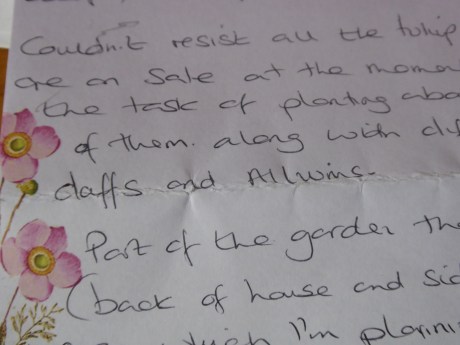 Couldn't resist all the tulip
are on sale at the mome
the task of planting abo
of them. along with dif
daffs and Alluims.
Part of the garden the
(back of house and sid
which I'm planni